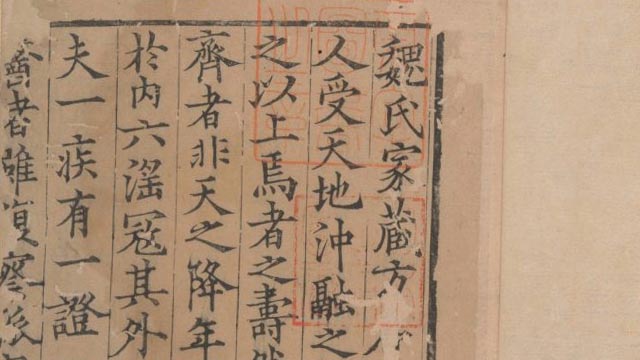 魏氏家藏方
人受天地沖融之
之以上焉者之壽
齊者非天之降年
於內六淫冠其外
夫一疾有一證
醫者雖貴察